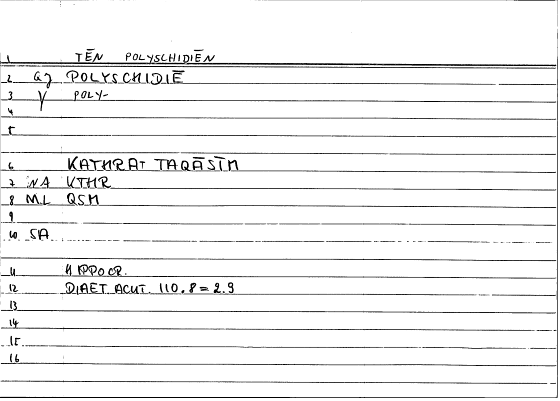 1 TĒN POLYSCHIDIĒN
2 aj POLYSCHIDIĒ
3 γ POLY-
4
5
6 KATHRAT TAQĀSĪM
7 NA KTHR
8 ML QSM
9
10 SA
11 HIPPOCR.
12 DIAET. ACUT. 110.8 = 2.9
13
14
15
16